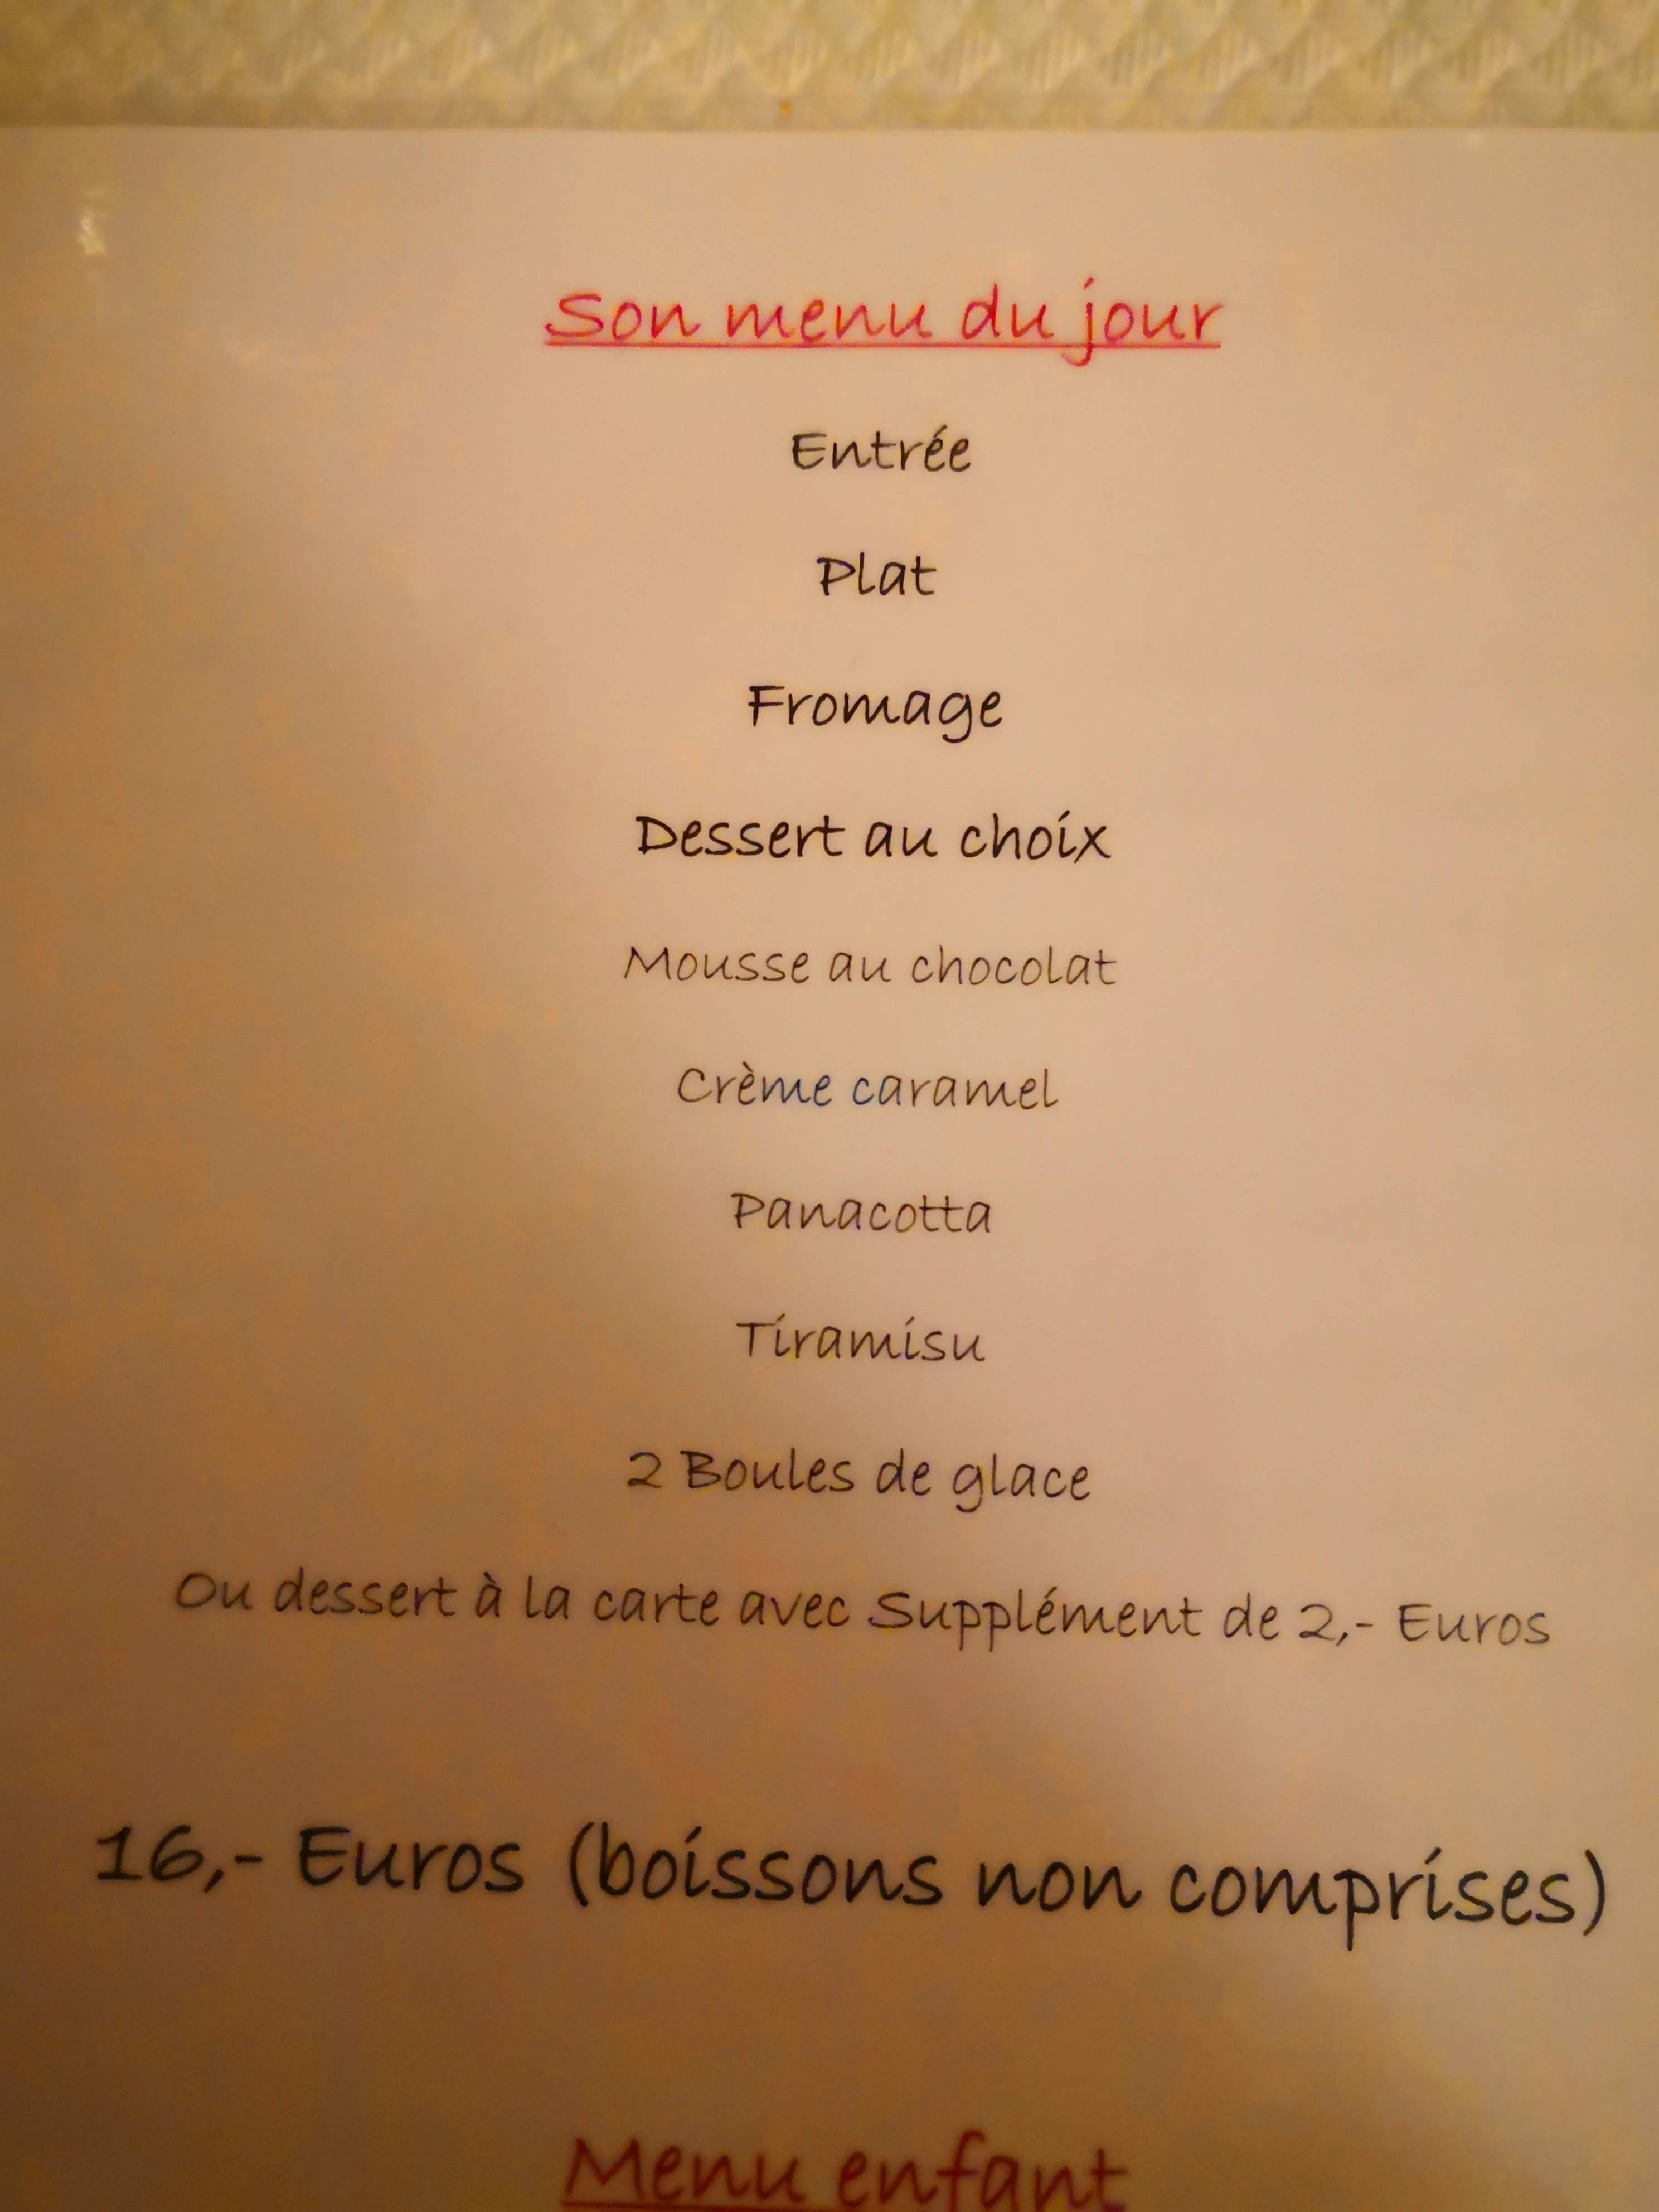 Son menu du jour
Entrée
Plat
Fromage
Dessert au choix
Mousse au chocolat
Crème caramel
Panacotta
Tiramisu
2 Boules de glace
Ou dessert à la carte avec Supplément de 2,- Euros
16,- Euros (boissons non comprises)
Menu enfant